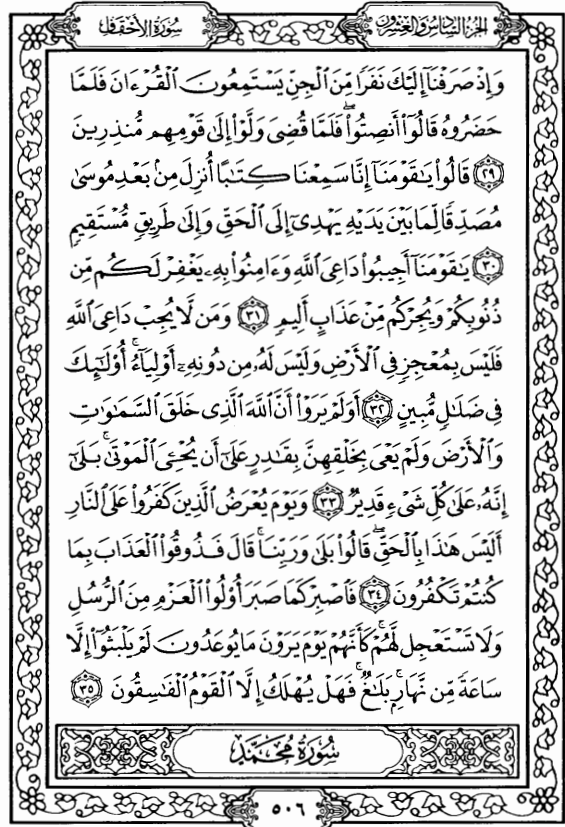 الجزء السادس والعشرون
سورة الأحقاف
وَإِذْ صَرَفْنَآ إِلَيْكَ نَفَرًا مِّنَ ٱلْجِنِّ يَسْتَمِعُونَ ٱلْقُرْءَانَ فَلَمَّا
حَضَرُوهُ قَالُوٓا۟ أَنصِتُوا۟ۖ فَلَمَّا قُضِىَ وَلَّوْا۟ إِلَىٰ قَوْمِهِم مُّنذِرِينَ
٢٩ قَالُوا۟ يَٰقَوْمَنَآ إِنَّا سَمِعْنَا كِتَٰبًا أُنزِلَ مِنۢ بَعْدِ مُوسَىٰ
مُصَدِّقًا لِّمَا بَيْنَ يَدَيْهِ يَهْدِىٓ إِلَى ٱلْحَقِّ وَإِلَىٰ طَرِيقٍ مُّسْتَقِيمٍ
٣٠ يَٰقَوْمَنَآ أَجِيبُوا۟ دَاعِىَ ٱللَّهِ وَءَامِنُوا۟ بِهِۦ يَغْفِرْ لَكُم مِّن
ذُنُوبِكُمْ وَيُجِرْكُم مِّنْ عَذَابٍ أَلِيمٍ ٣١ وَمَن لَّا يُجِبْ دَاعِىَ ٱللَّهِ
فَلَيْسَ بِمُعْجِزٍ فِى ٱلْأَرْضِ وَلَيْسَ لَهُۥ مِن دُونِهِۦٓ أَوْلِيَآءُۚ أُو۟لَٰٓئِكَ
فِى ضَلَٰلٍ مُّبِينٍ ٣٢ أَوَلَمْ يَرَوْا۟ أَنَّ ٱللَّهَ ٱلَّذِى خَلَقَ ٱلسَّمَٰوَٰتِ
وَٱلْأَرْضَ وَلَمْ يَعْىَ بِخَلْقِهِنَّ بِقَٰدِرٍ عَلَىٰٓ أَن يُحْـِۧىَ ٱلْمَوْتَىٰۚ بَلَىٰٓ
إِنَّهُۥ عَلَىٰ كُلِّ شَىْءٍ قَدِيرٌ ٣٣ وَيَوْمَ يُعْرَضُ ٱلَّذِينَ كَفَرُوا۟ عَلَى ٱلنَّارِ
أَلَيْسَ هَٰذَا بِٱلْحَقِّۖ قَالُوا۟ بَلَىٰ وَرَبِّنَاۚ قَالَ فَذُوقُوا۟ ٱلْعَذَابَ بِمَا
كُنتُمْ تَكْفُرُونَ ٣٤ فَٱصْبِرْ كَمَا صَبَرَ أُو۟لُوا۟ ٱلْعَزْمِ مِنَ ٱلرُّسُلِ
وَلَا تَسْتَعْجِل لَّهُمْۚ كَأَنَّهُمْ يَوْمَ يَرَوْنَ مَا يُوعَدُونَ لَمْ يَلْبَثُوٓا۟ إِلَّا
سَاعَةً مِّن نَّهَارٍۭۚ بَلَٰغٌۚ فَهَلْ يُهْلَكُ إِلَّا ٱلْقَوْمُ ٱلْفَٰسِقُونَ ٣٥
سُورَةُ مُحَمَّدٍ
٥٠٦